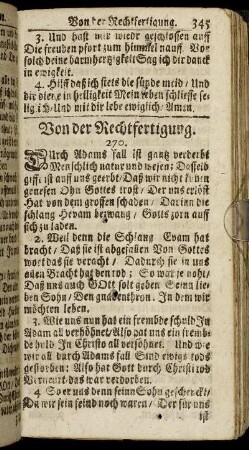 Von der Rechtfertigung. 345
3. Und hast mir wiedr geschlossen auff
Die freuden pfort zum himmel nauff. Vor
solch deine barmhertzigkeit Sag ich dir danck
in ewigkeit.
4. Hilff daß ich stets die sünde meid / Und
dir diene in heiligkeit Mein leben schliesse se-
lig-ich / Und mit dir lebe ewiglich / Amen.
Von der Rechtfertigung.
270.
Durch Adams fall ist gantz verderbt
Menschlich natur und wesen: Dasselb
gifft ist auff uns geerbt / Daß wir nicht kunn
genesen Ohn Gottes trost / Der uns erlöst
Hat von dem grossen schaden / Darinn die
schlang Hevam bezwang / Gotts zorn auff
sich zu laden.
2. Weil denn die Schlang Evam hat
bracht / Daß sie ist abgefallen Von Gottes
wort das sie veracht / Dadurch sie in uns
allen Bracht hat den tod; So war je noht /
Daß uns auch GOtt solt geben Seinn lie-
ben Sohn / Den gnadenthron. In dem wir
möchten leben.
3. Wie uns nun hat ein frembde schuld In
Adam all verhöhnet / Also hat uns ein fremb-
de huld In Christo all versöhnet. Und wie
wir all durch Adams fall Sind ewigs tods
gestorben: Also hat Gott durch Christi tod
Verneurt das war verdorben.
4 So er uns denn seinn Sohn geschenckt /
Da wir sein feind noch waren / Der für uns
ist